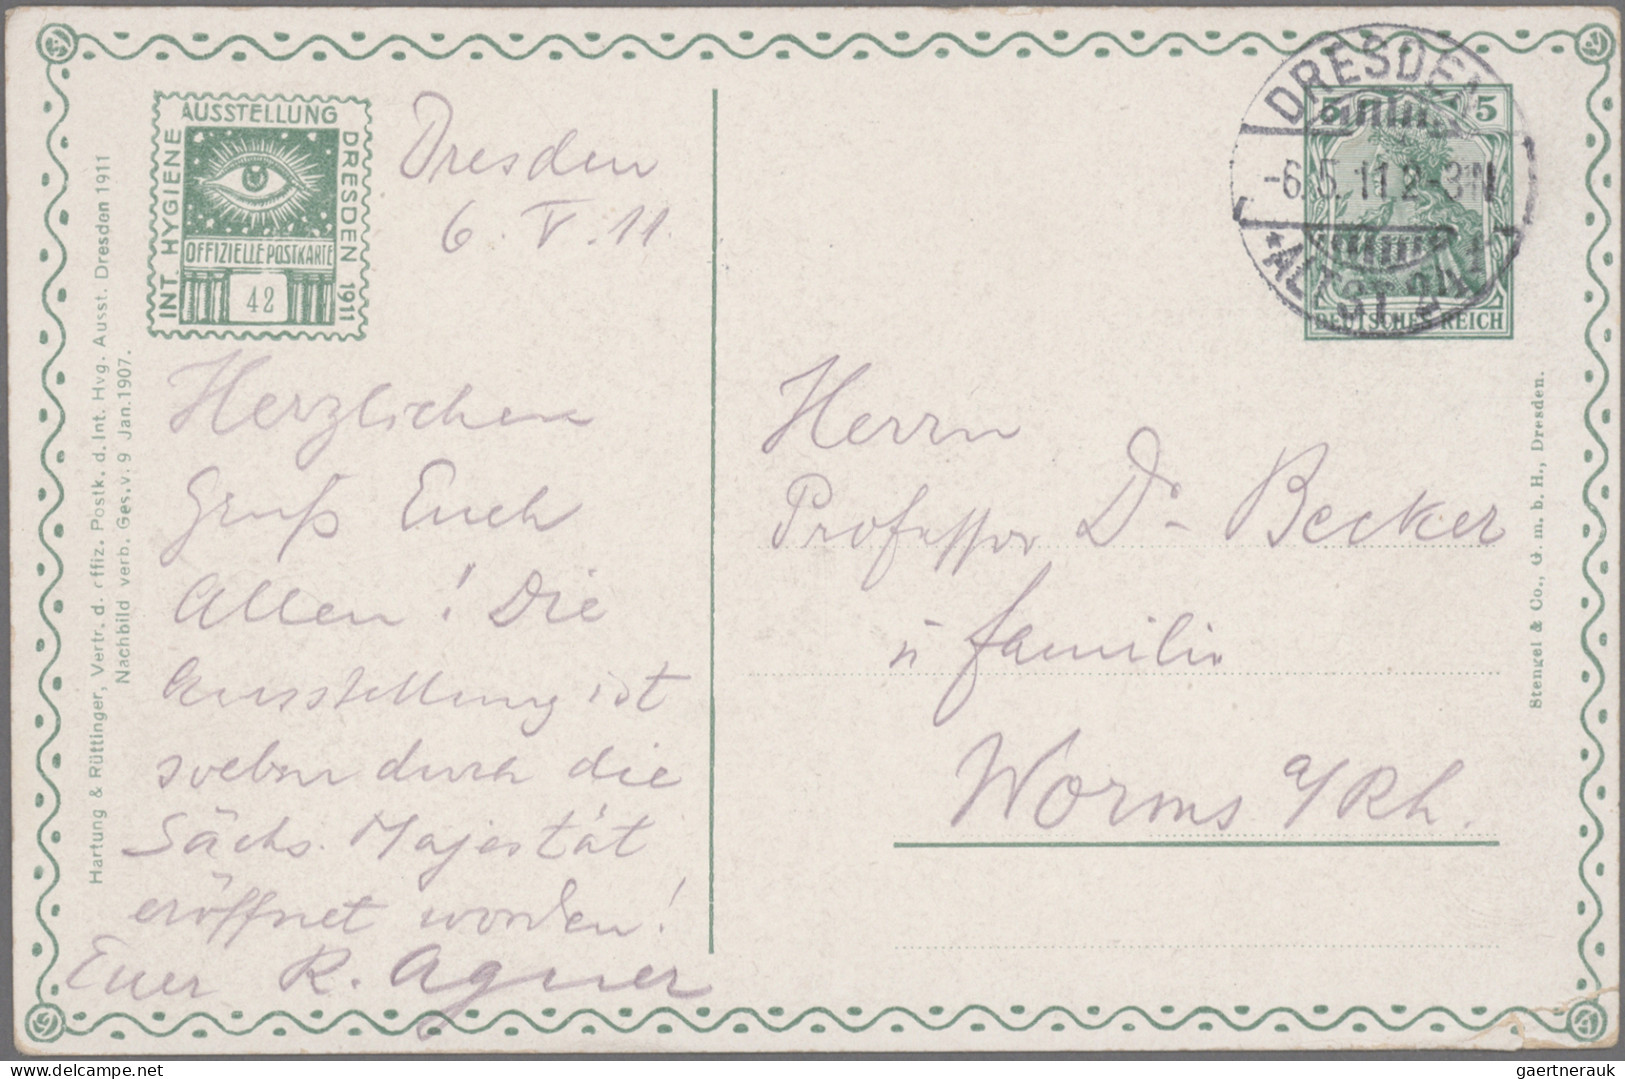 AUSSTELLUNG
INT. HYGIENE
DRESDEN 1911
OFFIZIELLE POSTKARTE
42
Dresden
6. V. 11.
Herzlichen
Gruß Euch
Allen! Die
Ausstellung ist
soeben durch die
Sächs. Majestät
eröffnet worden!
Euer R. Agner
Hartung & Rüttinger, Vertr. d. offiz. Postk. d. Int. Hyg. Ausst. Dresden 1911
Nachbild verb. Ges. v. 9 Jan. 1907.
DRESDEN
-6.5.11.2-3N.
*ALTST. 24
5
DEUTSCHES REICH
Herrn
Professor Dr. Becker
u Familie
Worms a/Rh.
Stengel & Co., G. m. b. H., Dresden.
gaertnerauk